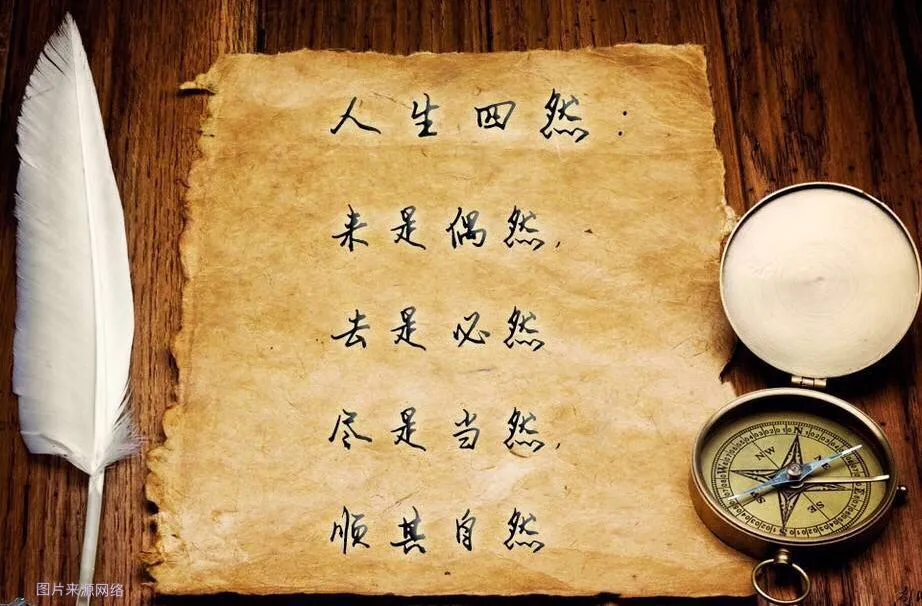 人生四然:
来是偶然,
去是必然
尽是当然,
顺其自然
图片来源网络